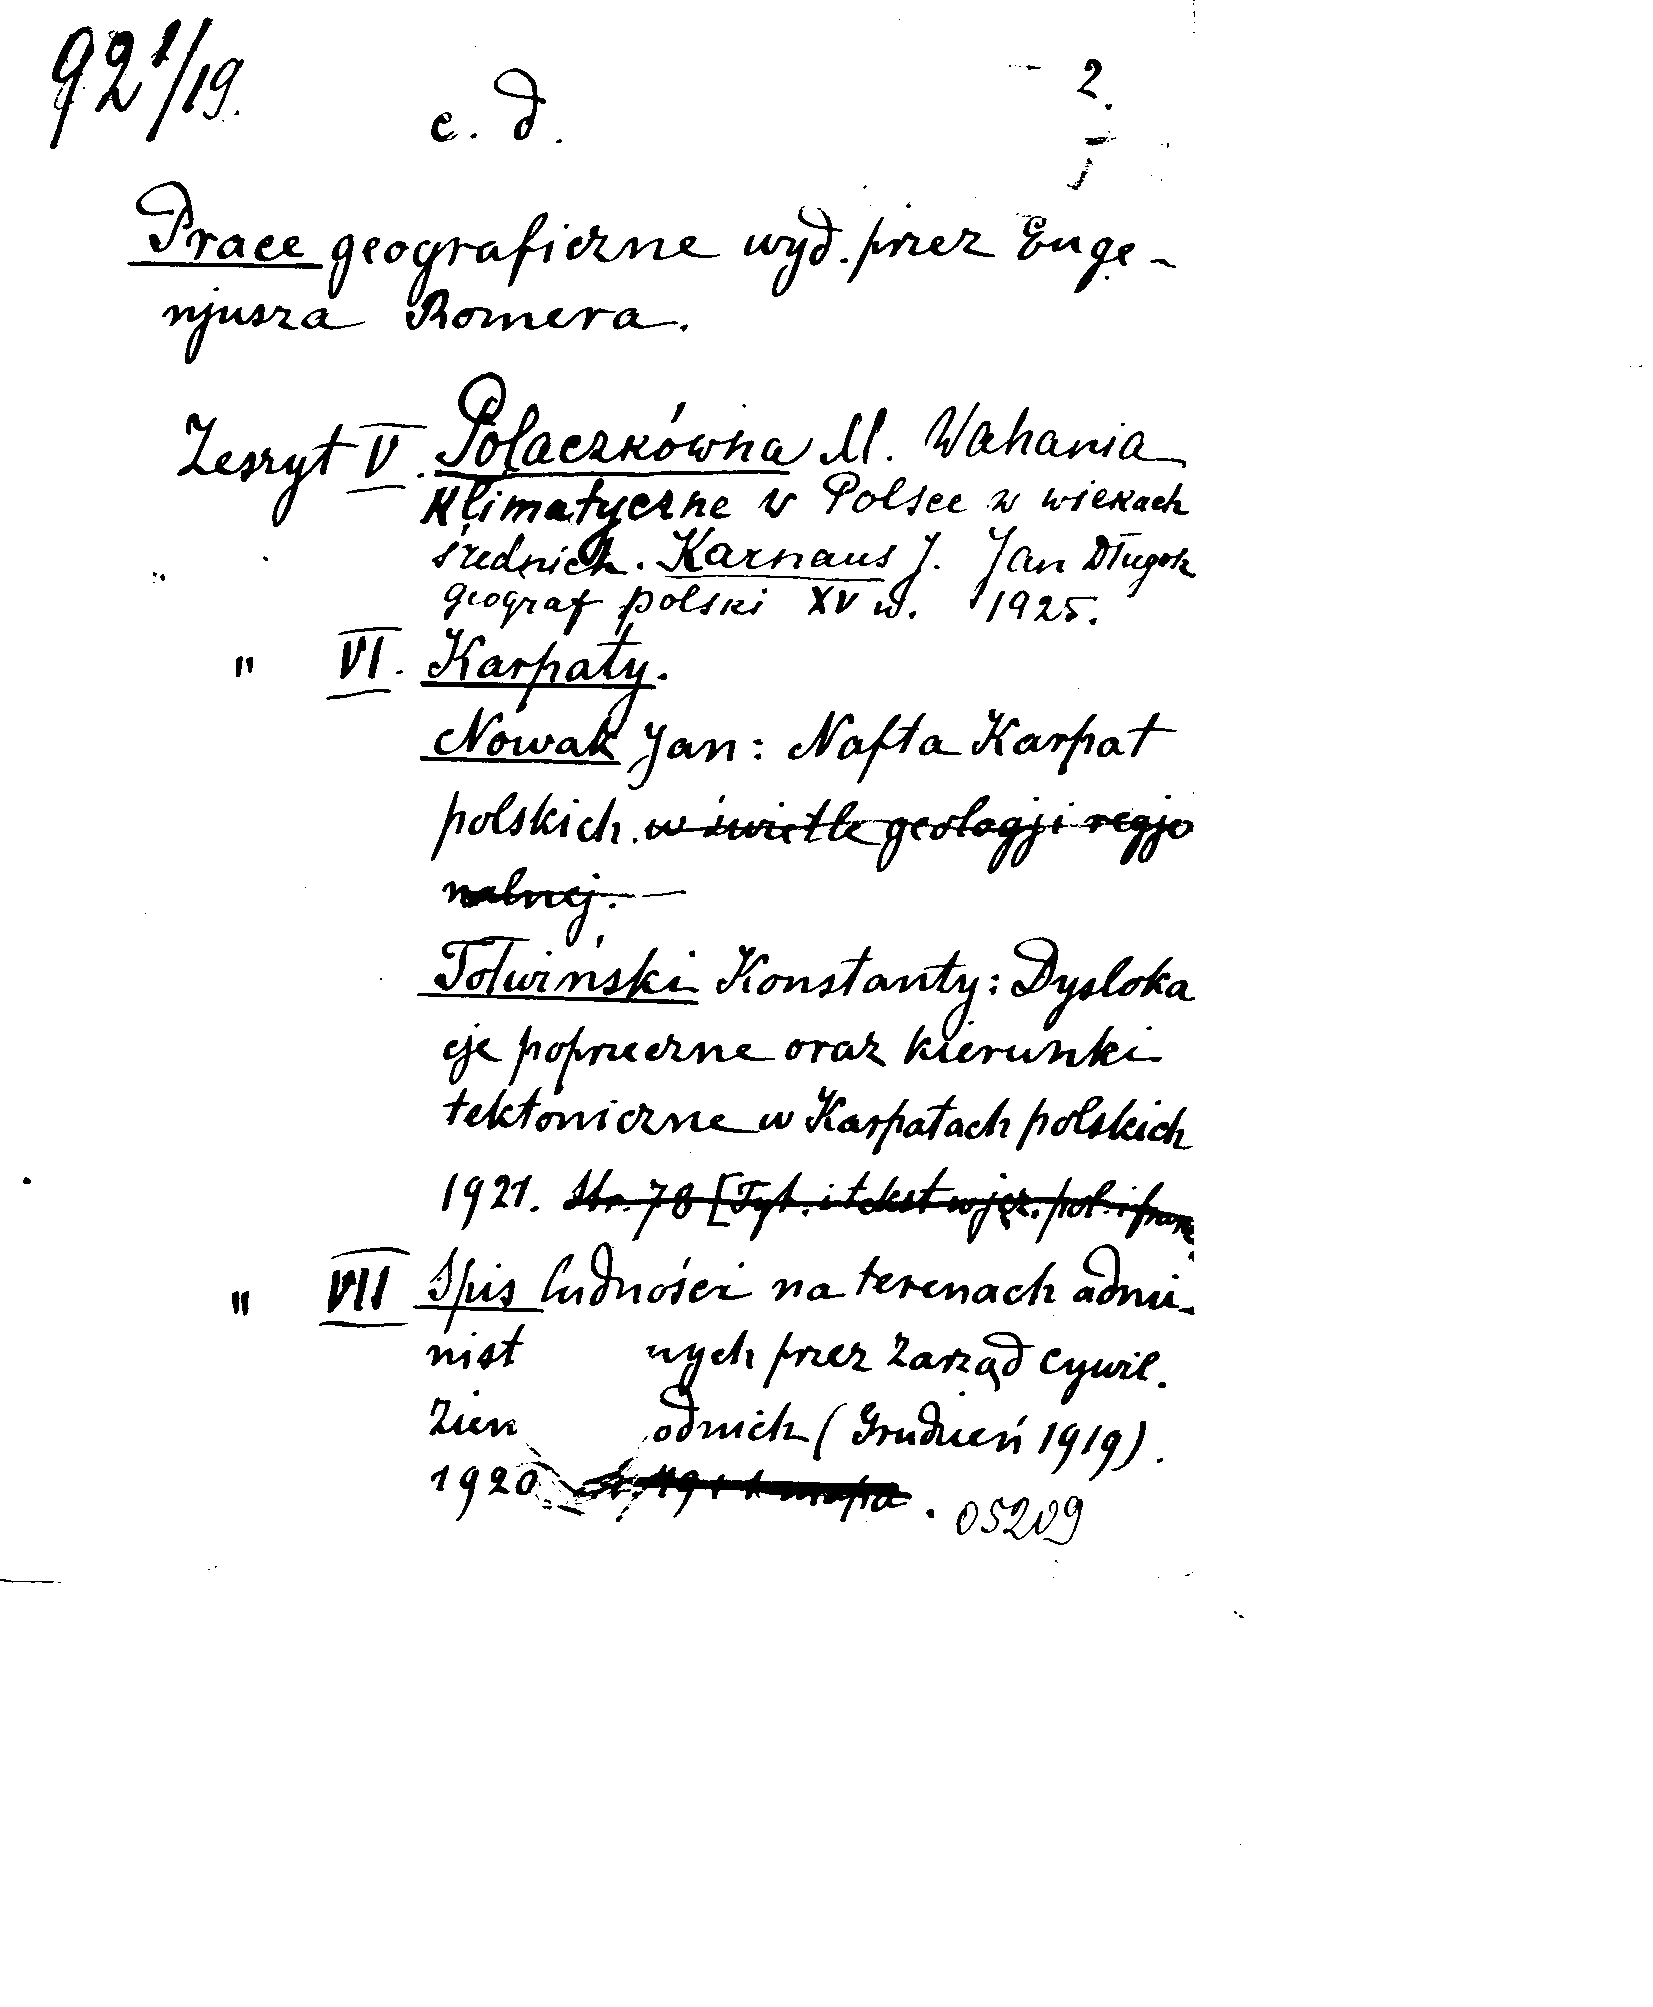 92 1/19.
c. d.
2.
Prace geograficzne wyd. przez Euge-
njusza Romera.
Zeszyt V. Polaczkówna M. Wahania
klimatyczne w Polsce w wiekach
średnich. Karnaus J. Jan Długok
geograf polski XV w. 1925.
" VI. Karpaty.
Nowak Jan: Nafta Karpat
polskich. w świetle geologji regjo
nalnej.
Tołwiński Konstanty: Dysloka
cje poprzeczne oraz kierunki
tektoniczne w Karpatach polskich
1921. Str. 78 [Tyt. i tekst w jęz. pol. i franc
" VII Spis ludności na terenach admi-
nist nych przez Zarząd cywil.
Ziem odnich (Grudzień 1919).
1920 49 1 mapa. 05209